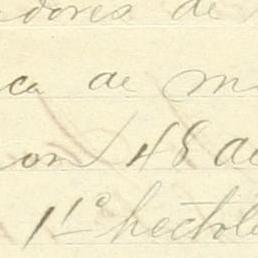 adores de
ca de m
on 48 de
1 1º hectol